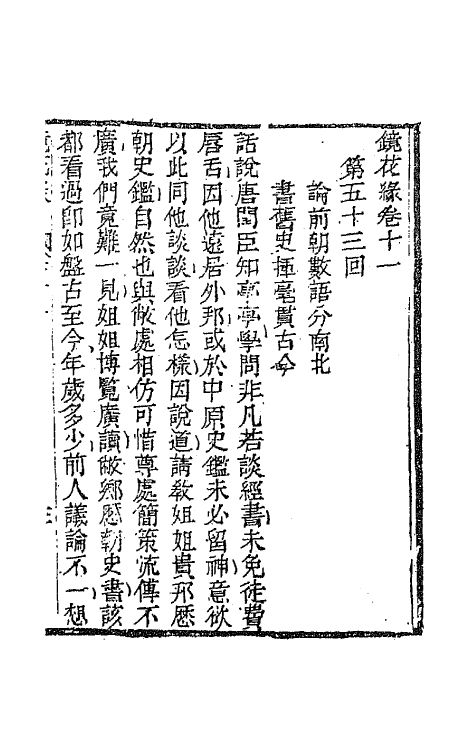 鏡花緣卷十一
第五十三回
論前朝數語分南北
書舊史揮毫貫古今
話說唐閨臣知亭亭學問非凡若談經書未免徒費
唇舌因他遠居外邦或於中原史鑑未必留神意欲
以此同他談談看他怎樣因說道請敎姐姐貴邦歷
朝史鑑自然也與敝處相仿可惜尊處簡策流傳不
廣我們竟難一見姐姐博覽廣讀敝鄉歷朝史書該
都看過卽如盤古至今年歲多少前人議論不一想